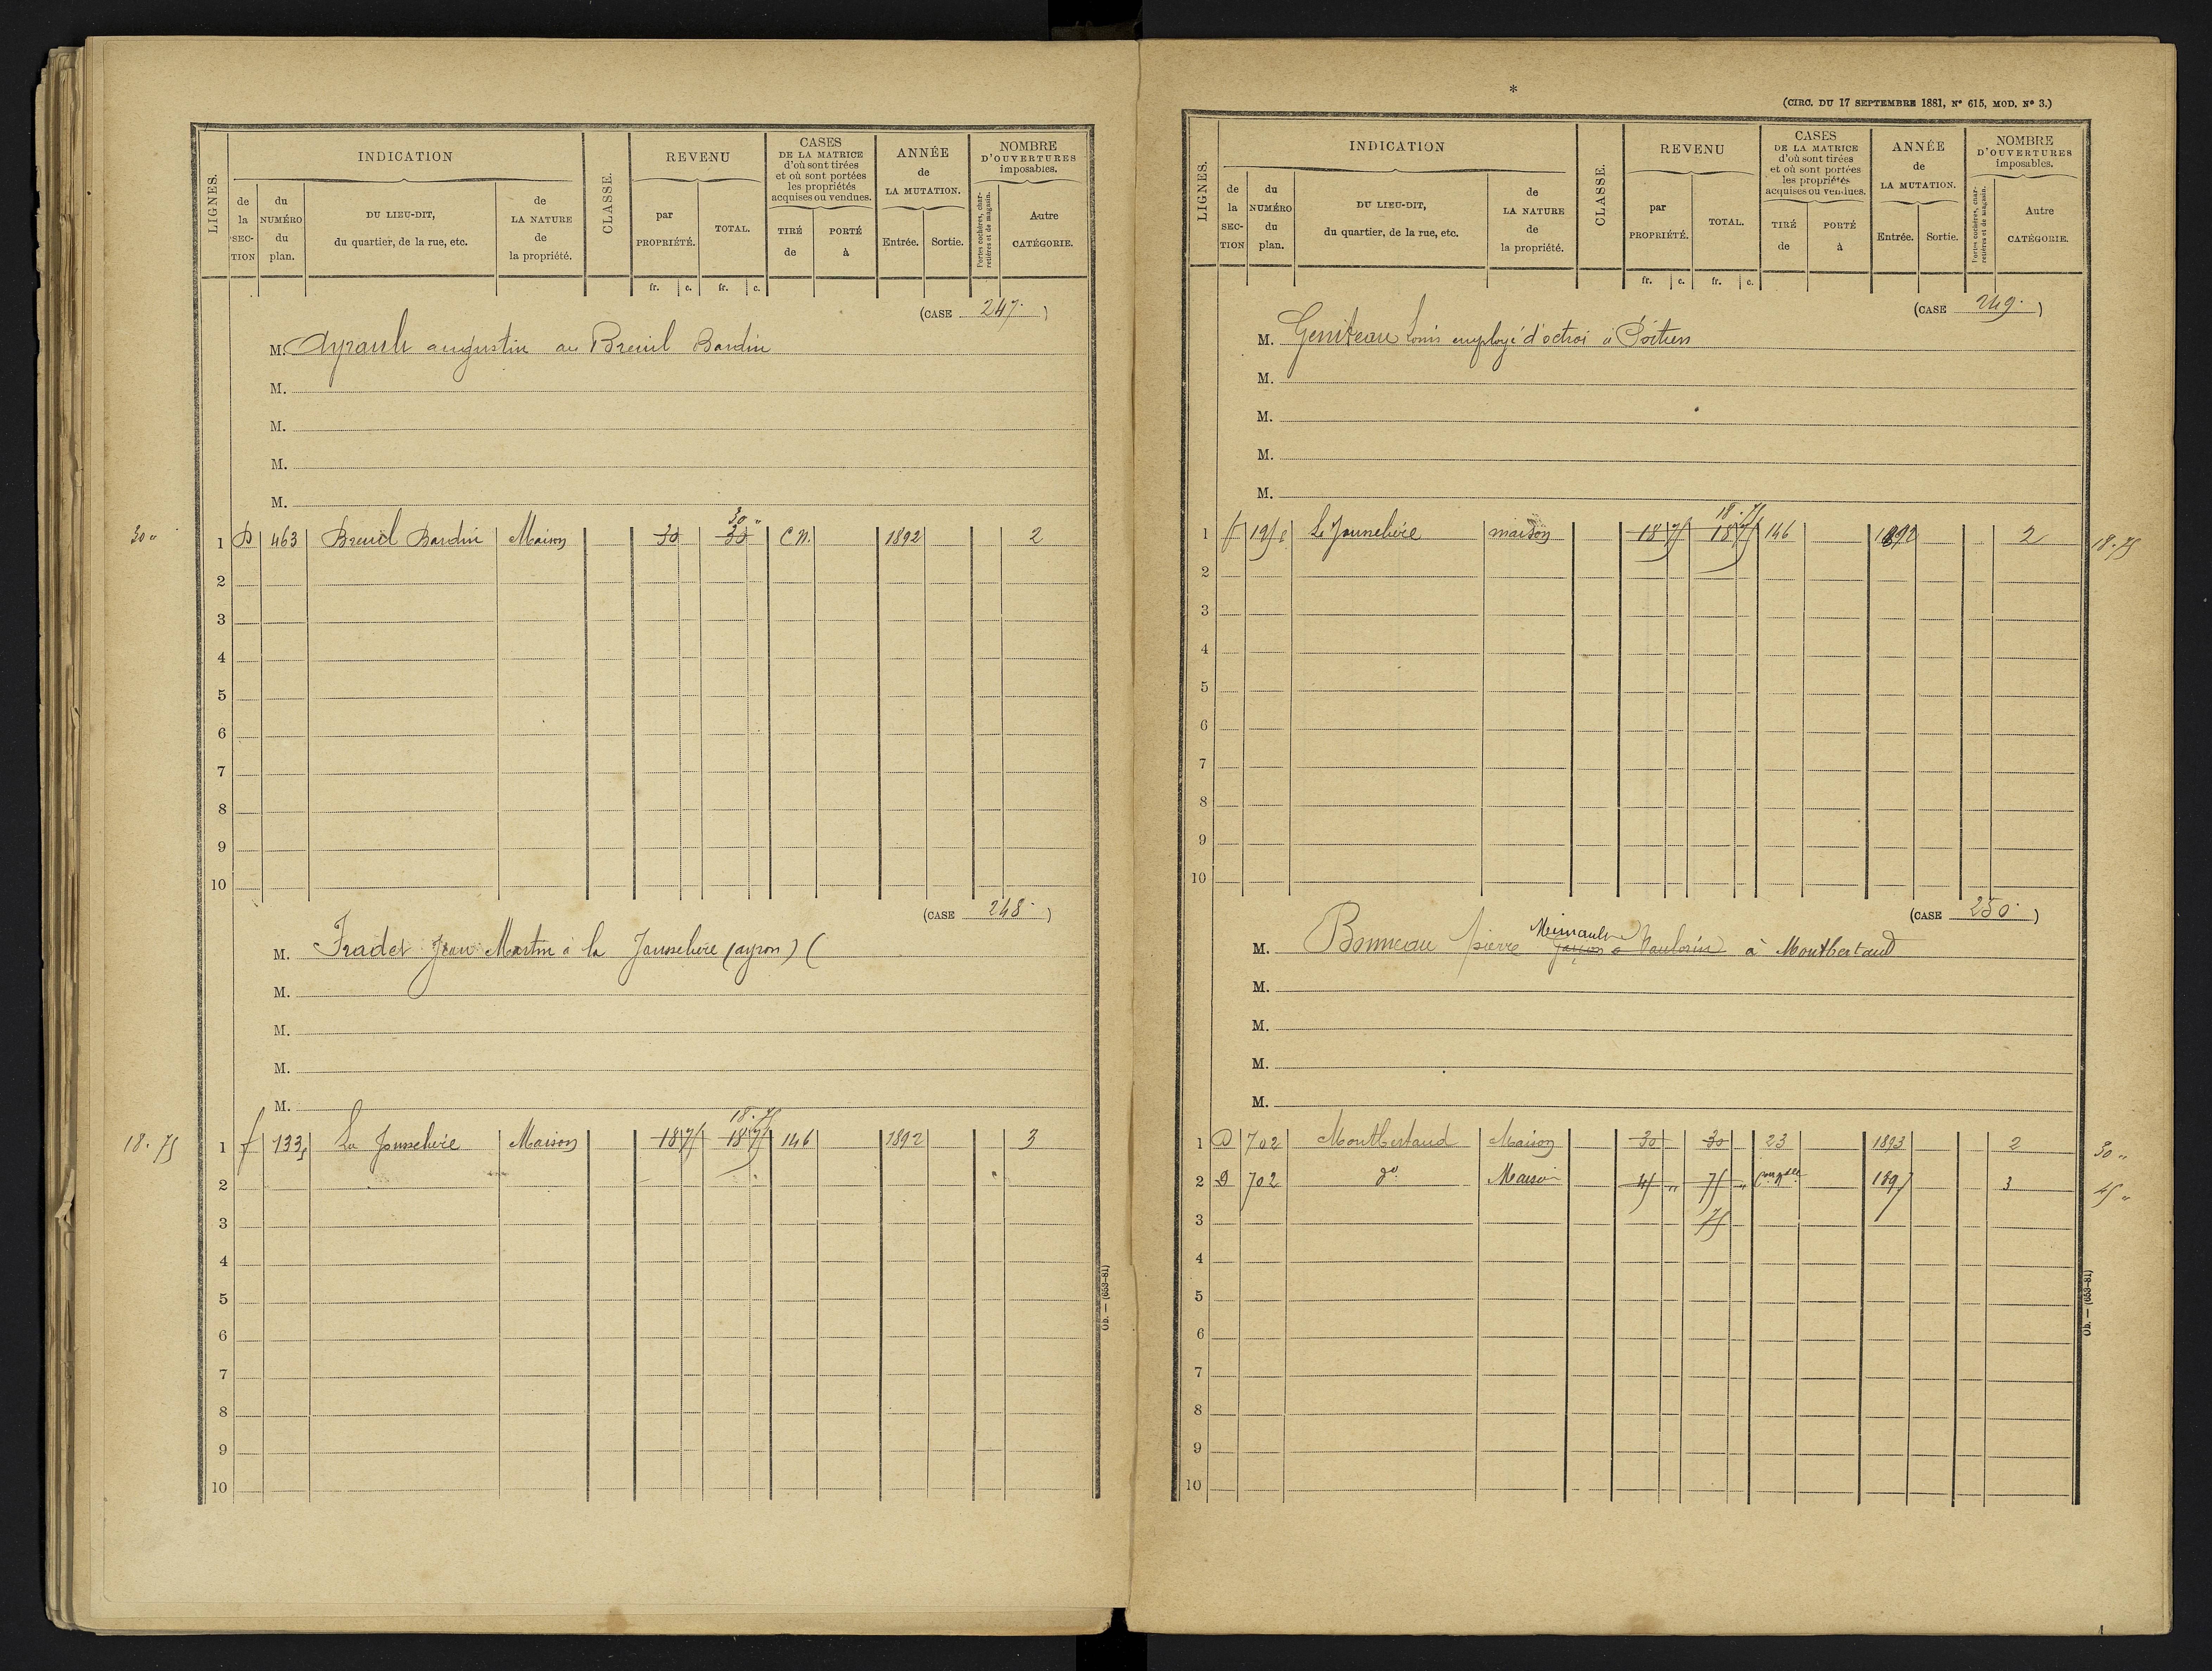 LIGNES.
INDICATION
de la SEC-TION
du NUMÉRO du plan.
DU LIEU-DIT, du quartier, de la rue, etc.
de LA NATURE de la propriété.
CLASSE.
REVENU
par PROPRIÉTÉ.
TOTAL.
CASES DE LA MATRICE d'où sont tirées et où sont portées les propriétés acquises ou vendues.
TIRÉ de
PORTÉ à
ANNÉE de LA MUTATION.
Entrée.
Sortie.
NOMBRE D'OUVERTURES imposables.
Portes cochères, charretières et de magasin.
Autre CATÉGORIE.
fr. c. fr. c.
(CASE 247.)
M. Ayrault augustin au Breuil Bardin
M.
M.
M.
M.
30 "
30 "
1 D 463 Breuil Bardin Maison 30 30 C.N. 1892 2
2
3
4
5
6
7
8
9
10
(CASE 248.)
M. Fradet Jean Martin à la Jousselière (ayron) (
M.
M.
M.
M.
18.75
18.75
1 f 133 La Jousselière Maison 18 75 18 75 146 1892 3
2
3
4
5
6
7
8
9
10
Ob. — (653-81)
*
(CIRC. DU 17 SEPTEMBRE 1881, N° 615, MOD. N° 3.)
LIGNES.
INDICATION
de la SEC-TION
du NUMÉRO du plan.
DU LIEU-DIT, du quartier, de la rue, etc.
de LA NATURE de la propriété.
CLASSE.
REVENU
par PROPRIÉTÉ.
TOTAL.
CASES DE LA MATRICE d'où sont tirées et où sont portées les propriétés acquises ou vendues.
TIRÉ de
PORTÉ à
ANNÉE de LA MUTATION.
Entrée.
Sortie.
NOMBRE D'OUVERTURES imposables.
Portes cochères, charretières et de magasin.
Autre CATÉGORIE.
fr. c. fr. c.
(CASE 249.)
M. Geniteau Louis employé d'octroi à Poitiers
M.
M.
M.
M.
18.75
1 f La Jousselière maison 18 75 18 75 146 1892 2 18.75
2
3
4
5
6
7
8
9
10
(CASE 250.)
M. Bonneau pierre à Montbertaud
M.
M.
M.
M.
1 D 702 Montbertaud Maison 30 30 23 1893 2 30 "
2 D 702 do Maison 45 " 75 " 1897 3 45 "
3 75
4
5
6
7
8
9
10
Ob. — (653-81)